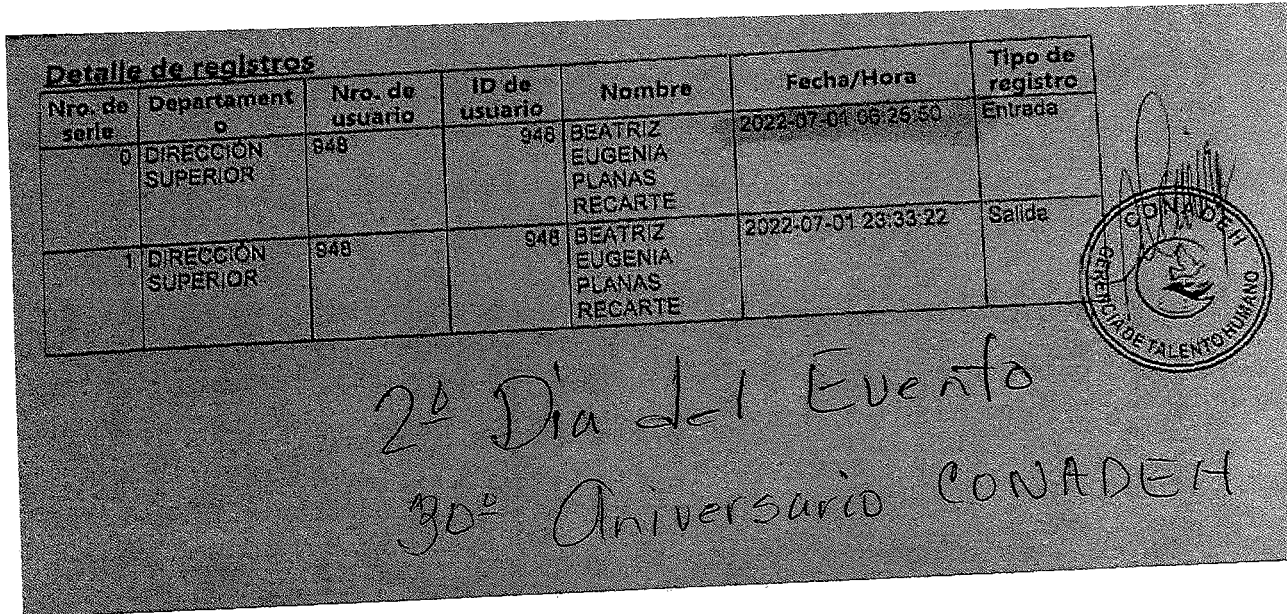 Detalle de registros
Nro. de serie Departamento Nro. de usuario ID de usuario Nombre Fecha/Hora Tipo de registro
0 DIRECCIÓN SUPERIOR 948 948 BEATRIZ EUGENIA PLANAS RECARTE 2022-07-01 06:25:50 Entrada
1 DIRECCIÓN SUPERIOR 948 948 BEATRIZ EUGENIA PLANAS RECARTE 2022-07-01 23:33:22 Salida
CONADEH
GERENCIA DE TALENTO HUMANO
2º Día del Evento
30º Aniversario CONADEH